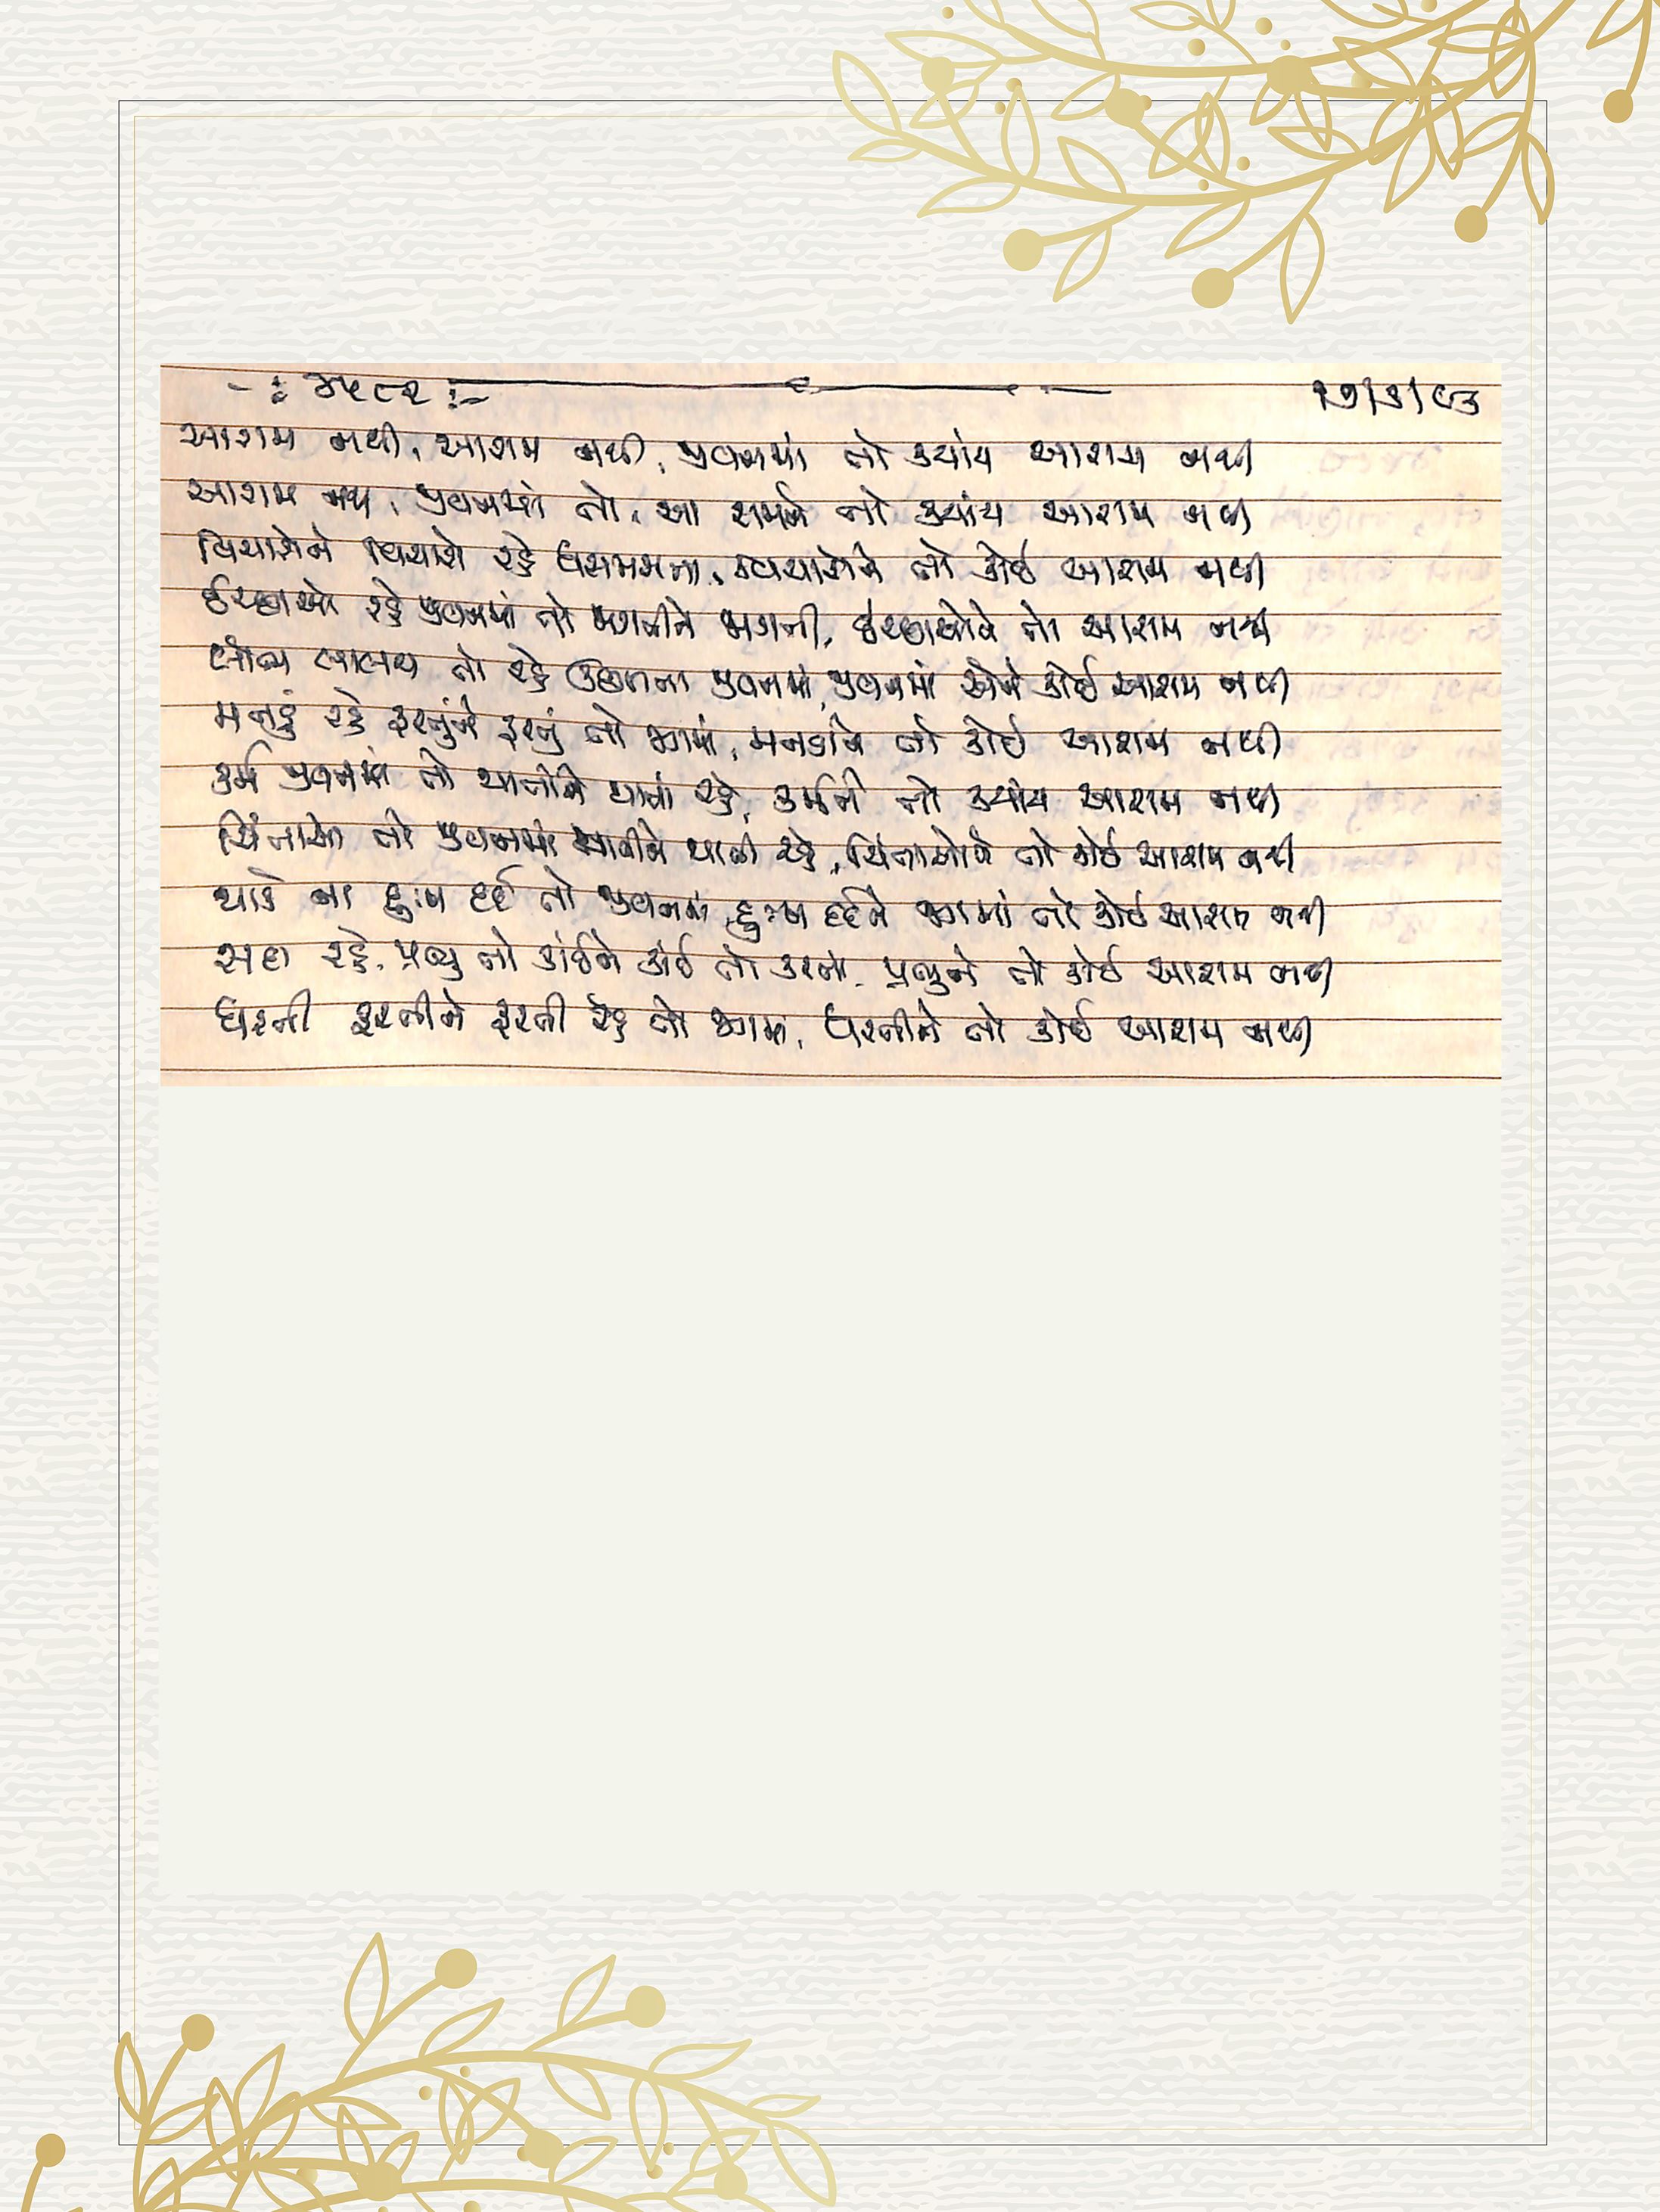 -: ૪૫૮૨ :-
૧૭/૩/૯૩
આરામ નથી, આરામ નથી, જીવનમાં તો ક્યાંય આરામ નથી
આરામ નથી, જીવનમાં તો, આ સમજે તો ક્યાંય આરામ નથી
વિચારોને વિચારો રહે ધસમસતા, વિચારોને તો કોઈ આરામ નથી
ઈચ્છાઓ રહે જીવનમાં તો જાગતીને જાગતી, ઈચ્છાઓને તો આરામ નથી
લોભ લાલચ તો રહે ઊછળતા જીવનમાં, જીવનમાં એને કોઈ આરામ નથી
મનડું રહે ફરતુંને ફરતું તો જગમાં, મનડાંને તો કોઈ આરામ નથી
કર્મ જીવનમાં તો થાતાંને થાતાં રહે, કર્મને તો ક્યાંય આરામ નથી
ચિંતાઓ તો જીવનમાં થાતીને થાતી રહે, ચિંતાઓને તો કોઈ આરામ નથી
થાકે ના દુઃખ દર્દ તો જીવનમાં, દુઃખ દર્દને જગમાં તો કોઈ આરામ નથી
સદા રહે, પ્રભુ તો કાંઈને કાંઈ તો કરતા, પ્રભુને તો કોઈ આરામ નથી
ધરતી ફરતીને ફરતી રહે તો જગમાં, ધરતીને તો કોઈ આરામ નથી